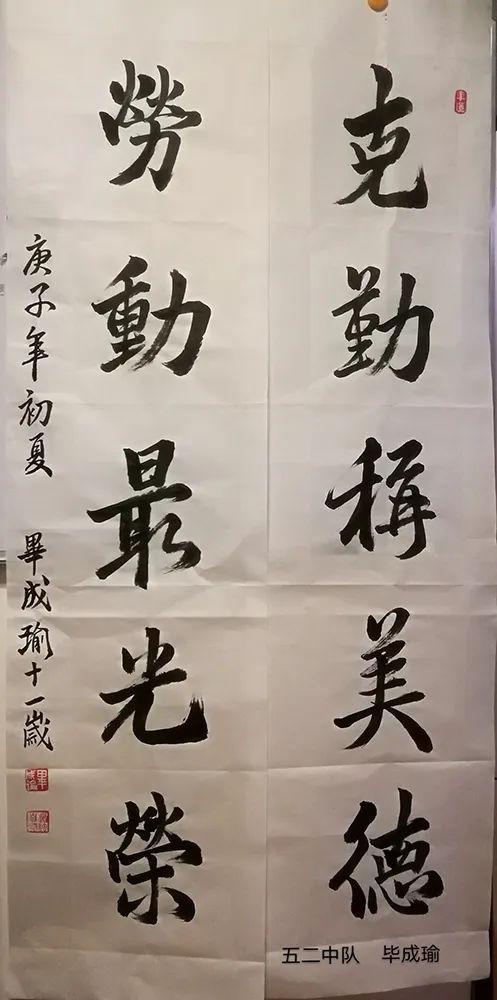 克勤稱美德
勞動最光榮
庚子年初夏 畢成瑜十一歲
五二中队 毕成瑜